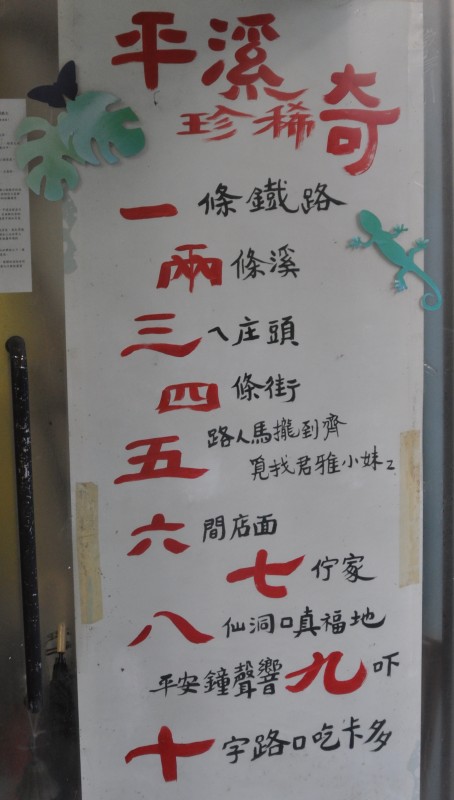 平溪
珍稀奇
一條鐵路
兩條溪
三ㄟ庄頭
四條街
五路人馬攏到齊
覓找君雅小妹妹
六間店面
七佇家
八仙洞口真福地
平安鐘聲響九吓
十字路口吃卡多